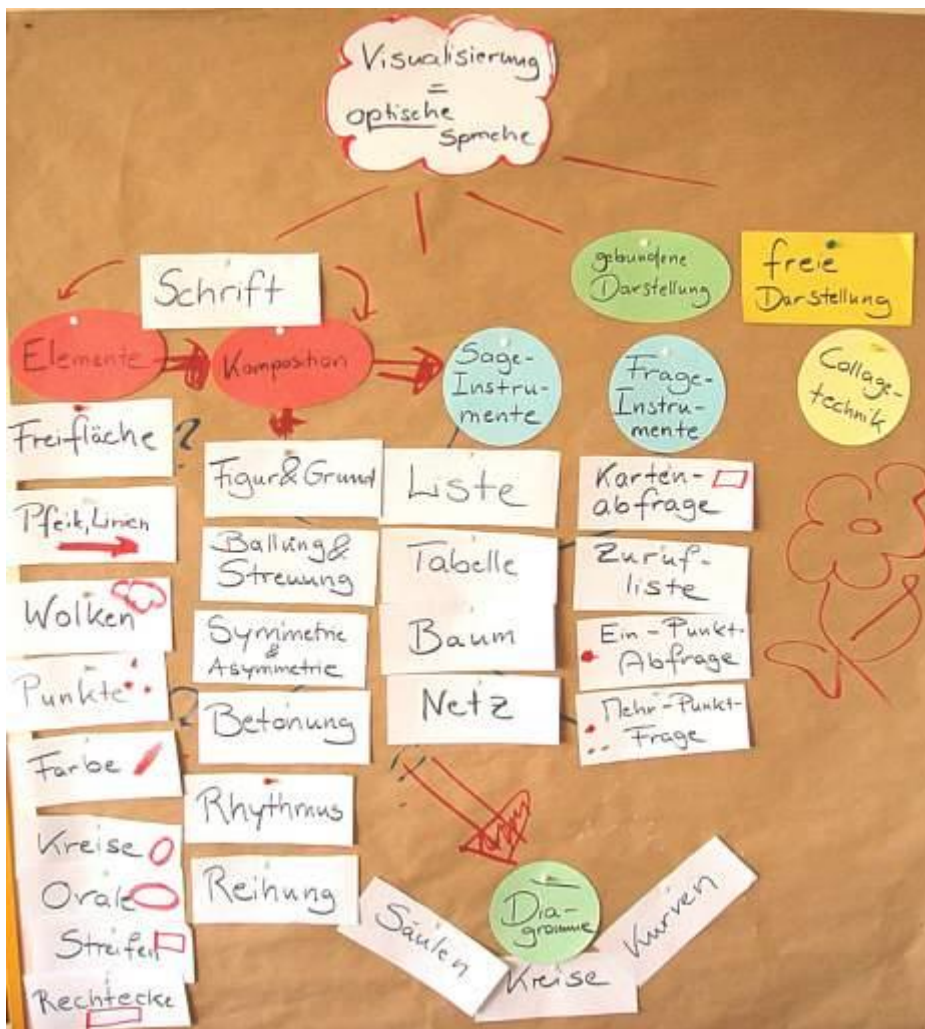 Visualisierung
=
optische
Sprache
gebundene
Darstellung
freie
Darstellung
Schrift
Elemente
Komposition
Sage-
Instru-
mente
Frage-
Instru-
mente
Collage-
technik
Freifläche
?
Pfeile, Linien
Wolken
Punkte
?
Farbe
Kreise
Ovale
Streifen
Rechtecke
Figur & Grund
Ballung &
Streuung
Symmetrie
&
Asymmetrie
Betonung
Rhythmus
Reihung
Liste
Tabelle
Baum
Netz
Karten-
abfrage
Zuruf-
liste
Ein-Punkt-
Abfrage
Mehr-Punkt-
Frage
Dia-
gramme
Säulen
Kreise
Kurven